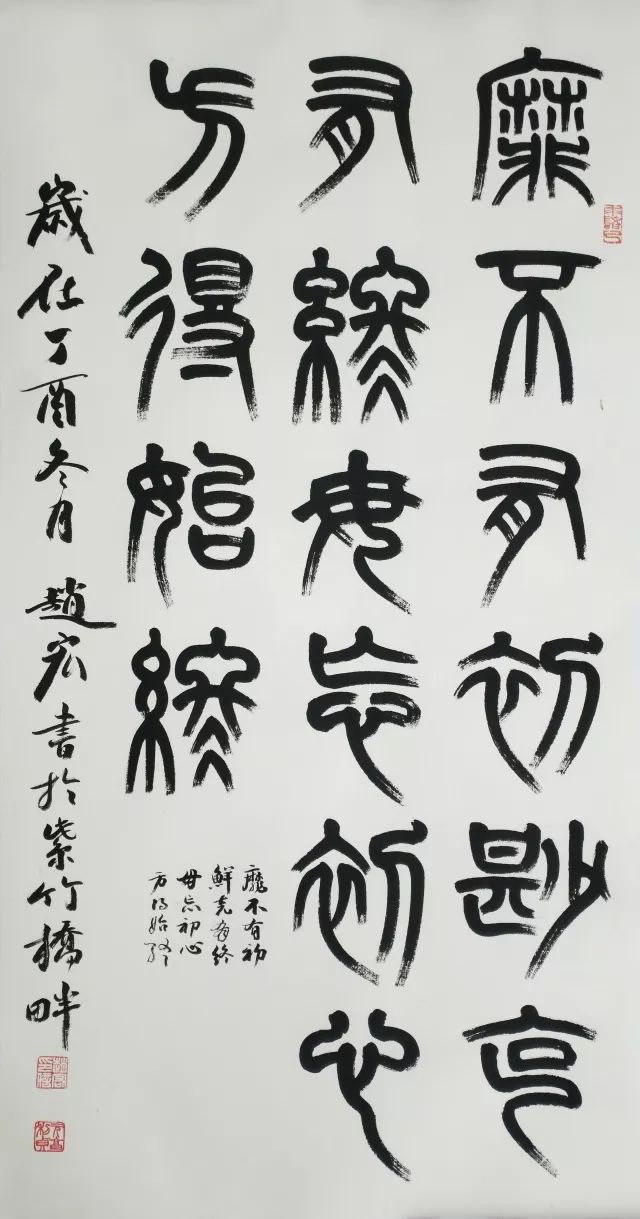 靡不有初尠克
有終毋忘初心
方得始終
靡不有初
鮮克有終
毋忘初心
方得始終
歲在丁酉冬月趙宏書於紫竹橋畔